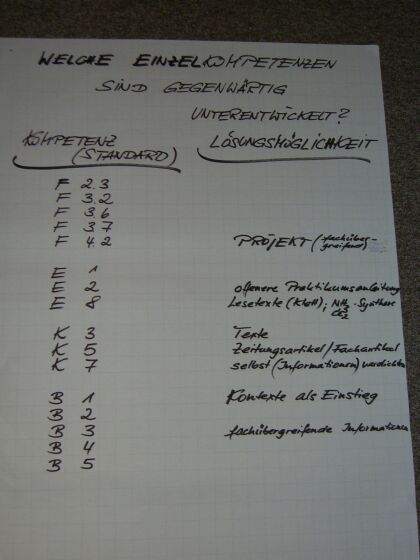 WELCHE EINZELKOMPETENZEN
SIND GEGENWÄRTIG
UNTERENTWICKELT?
KOMPETENZ (STANDARD) LÖSUNGSMÖGLICHKEIT
F 2.3
F 3.2
F 3.6
F 3.7
F 4.2 PROJEKT (fachübergreifend)
E 1
E 2 offenere Praktikumsanleitung
E 8 Lesetexte (Klett); NH3-Synthese
K 3 Texte
K 5 Zeitungsartikel/Fachartikel
K 7 selbst (Informationen) verdichten
B 1 Kontexte als Einstieg
B 2
B 3 fachübergreifende Informationen
B 4
B 5